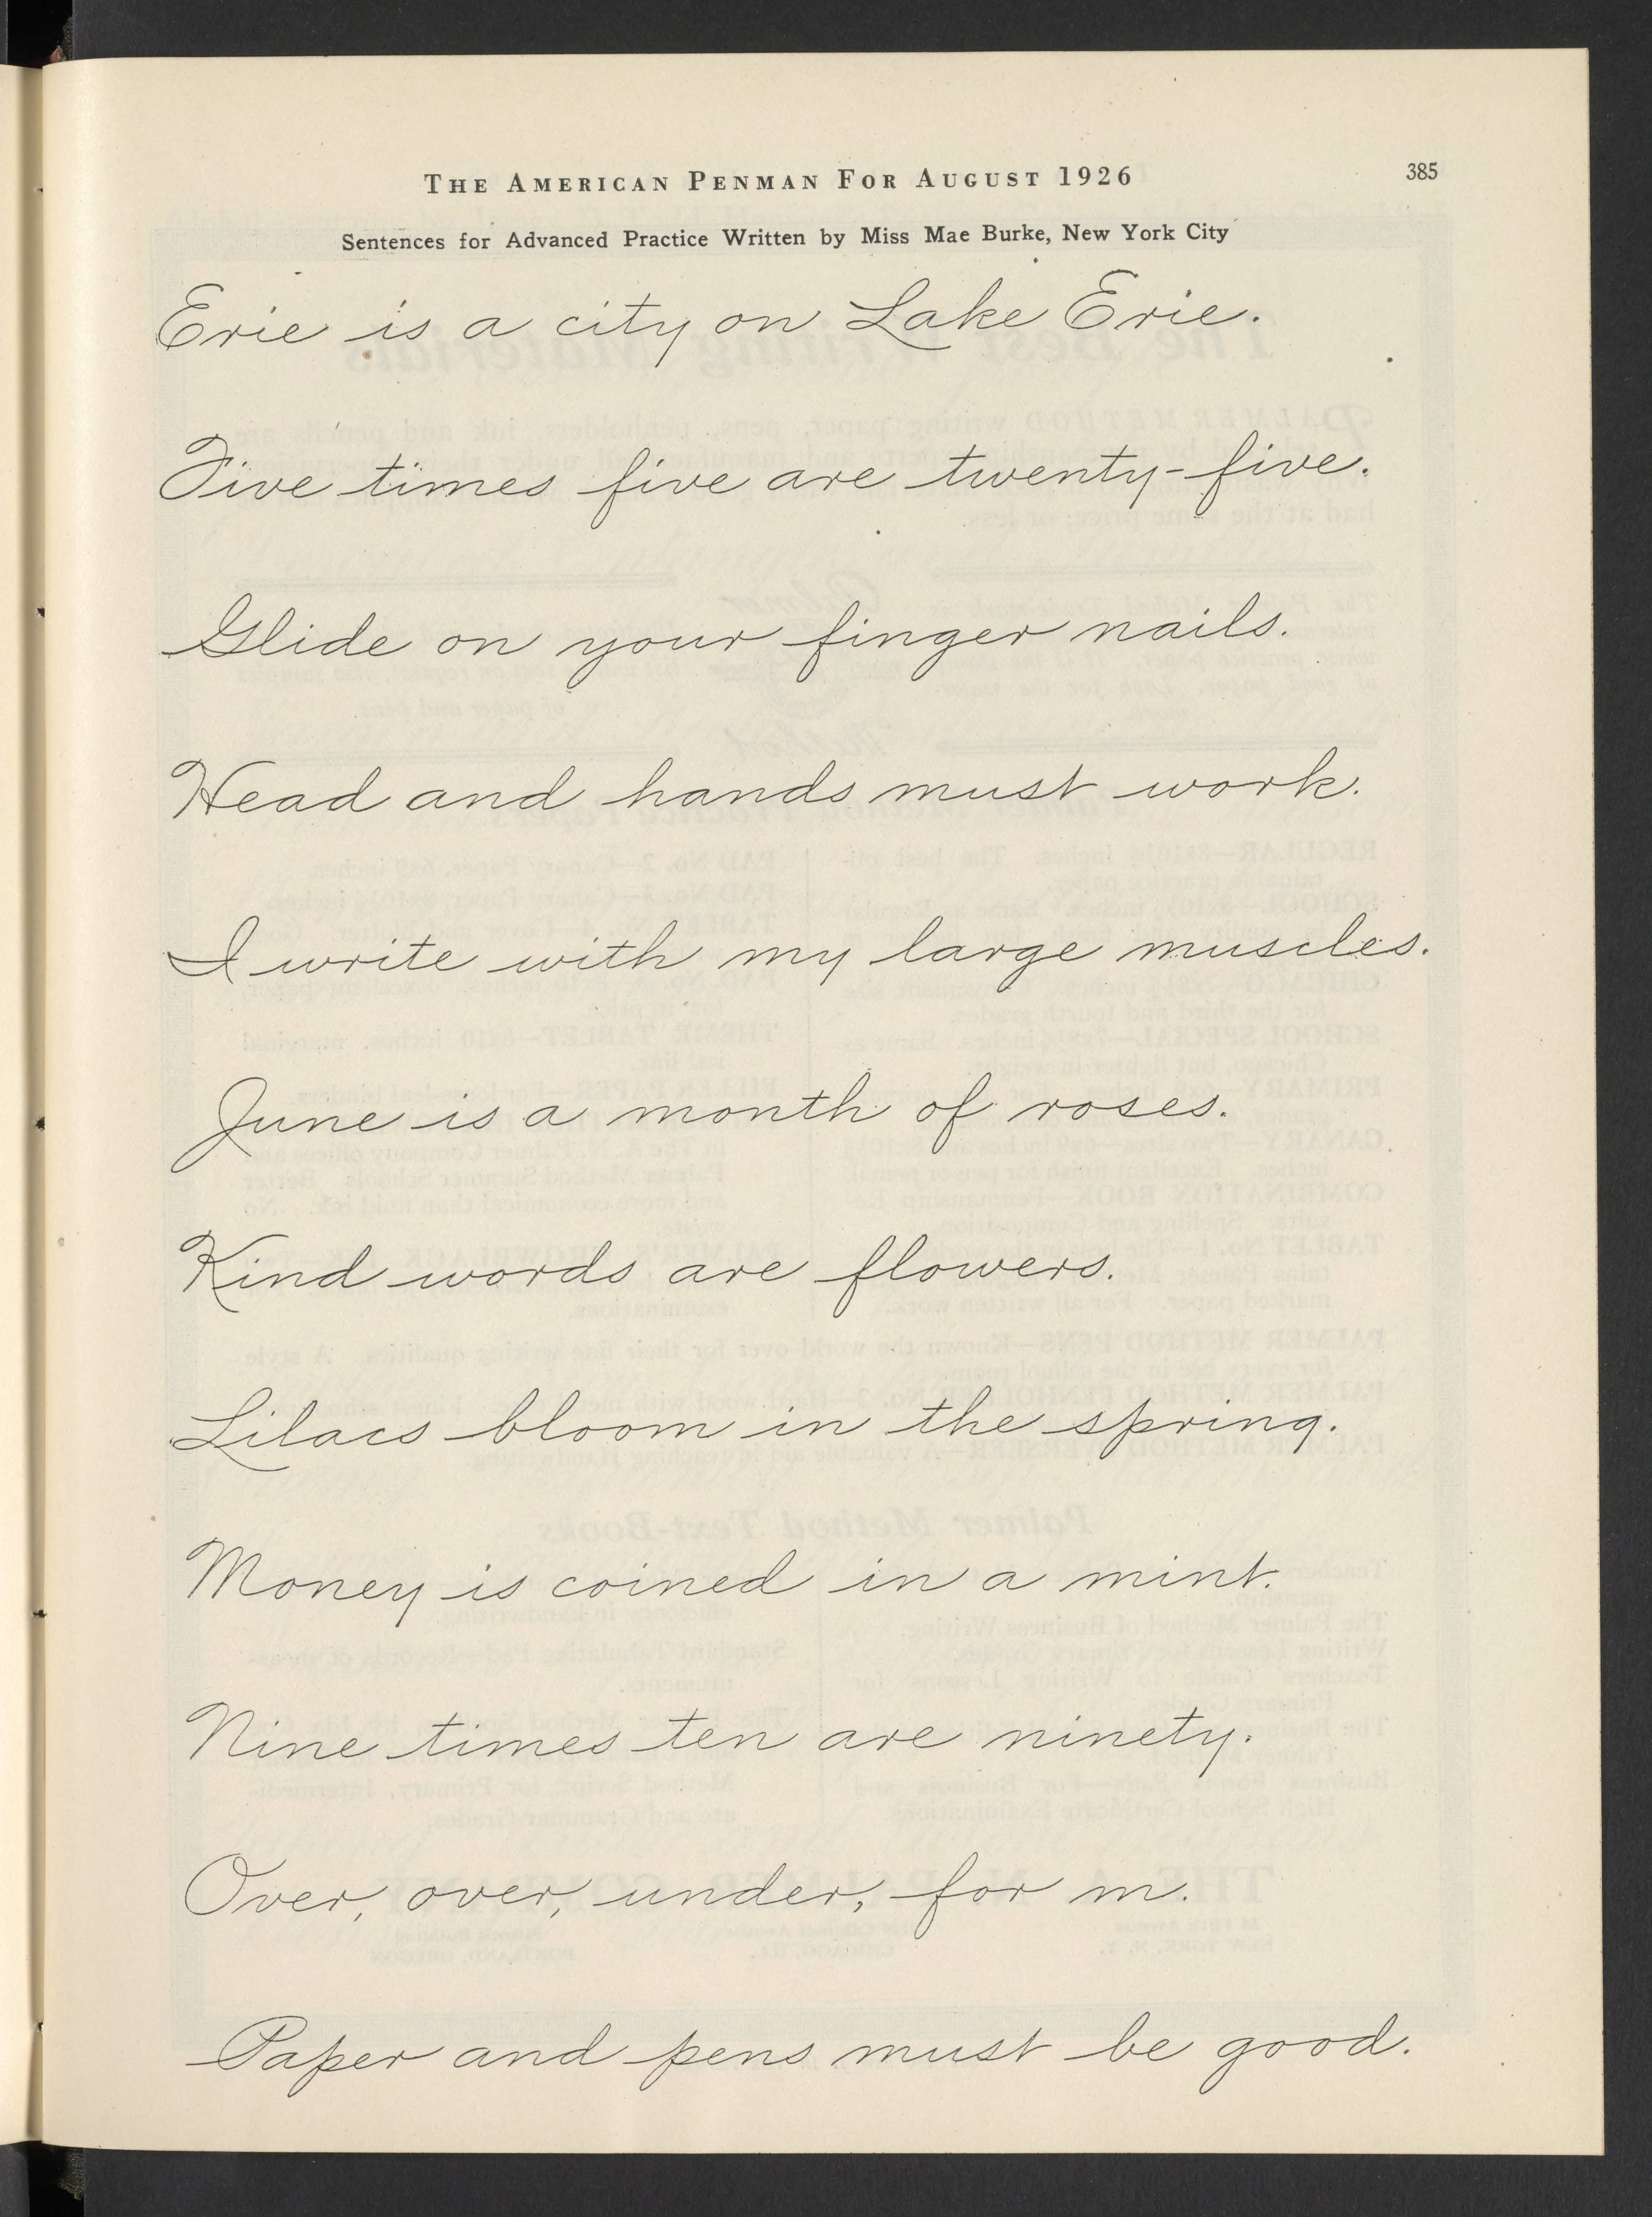 THE AMERICAN PENMAN FOR AUGUST 1926 385
Sentences for Advanced Practice Written by Miss Mae Burke, New York City
Erie is a city on Lake Erie.
Five times five are twenty-five.
Glide on your finger nails.
Head and hands must work.
I write with my large muscles.
June is a month of roses.
Kind words are flowers.
Lilacs bloom in the spring.
Money is coined in a mint.
Nine times ten are ninety.
Over, over, under, for m.
Paper and pens must be good.